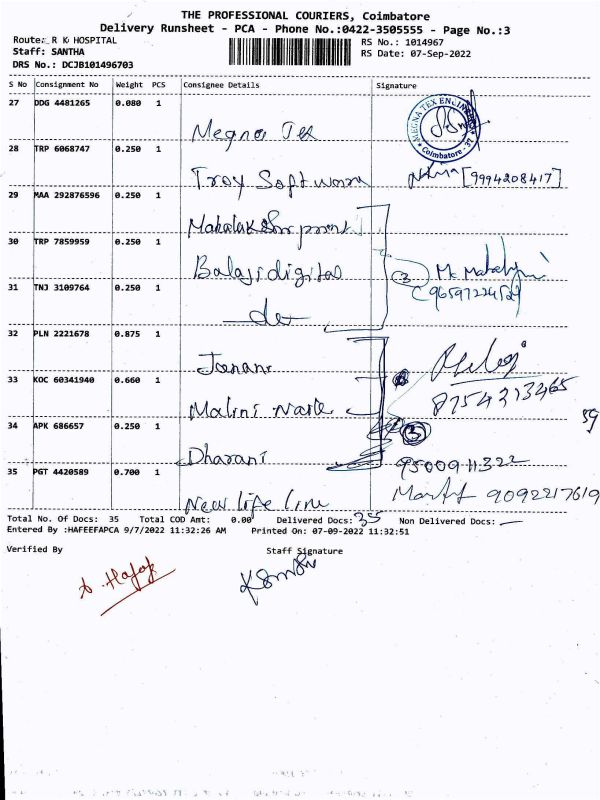 THE PROFESSIONAL COURIERS, Coimbatore
Delivery Runsheet - PCA - Phone No.:0422-3505555 - Page No.:3
Route: R K HOSPITAL
RS No.: 1014967
Staff: SANTHA
RS Date: 07-Sep-2022
DRS No.: DCJB101496703
S No Consignment No Weight PCS Consignee Details Signature
27 DDG 4481265 0.080 1
Megna Tex
MEGNA TEX ENGINEERING * Coimbatore
28 TRP 6068747 0.250 1
Troy Software [9994208417]
29 MAA 292876596 0.250 1
30 TRP 7859959 0.250 1
Balaji digital
3
31 TNJ 3109764 0.250 1
do
32 PLN 2221678 0.875 1
Janani
33 KOC 60341940 0.660 1
Malini
8754313465
34 APK 686657 0.250 1
3
Dharani 9500911322
35 PGT 4420589 0.700 1
New life line 9092217619
Total No. Of Docs: 35 Total COD Amt: 0.00 Delivered Docs: 35 Non Delivered Docs: —
Entered By :HAFEEFAPCA 9/7/2022 11:32:26 AM Printed On: 07-09-2022 11:32:51
Verified By Staff Signature